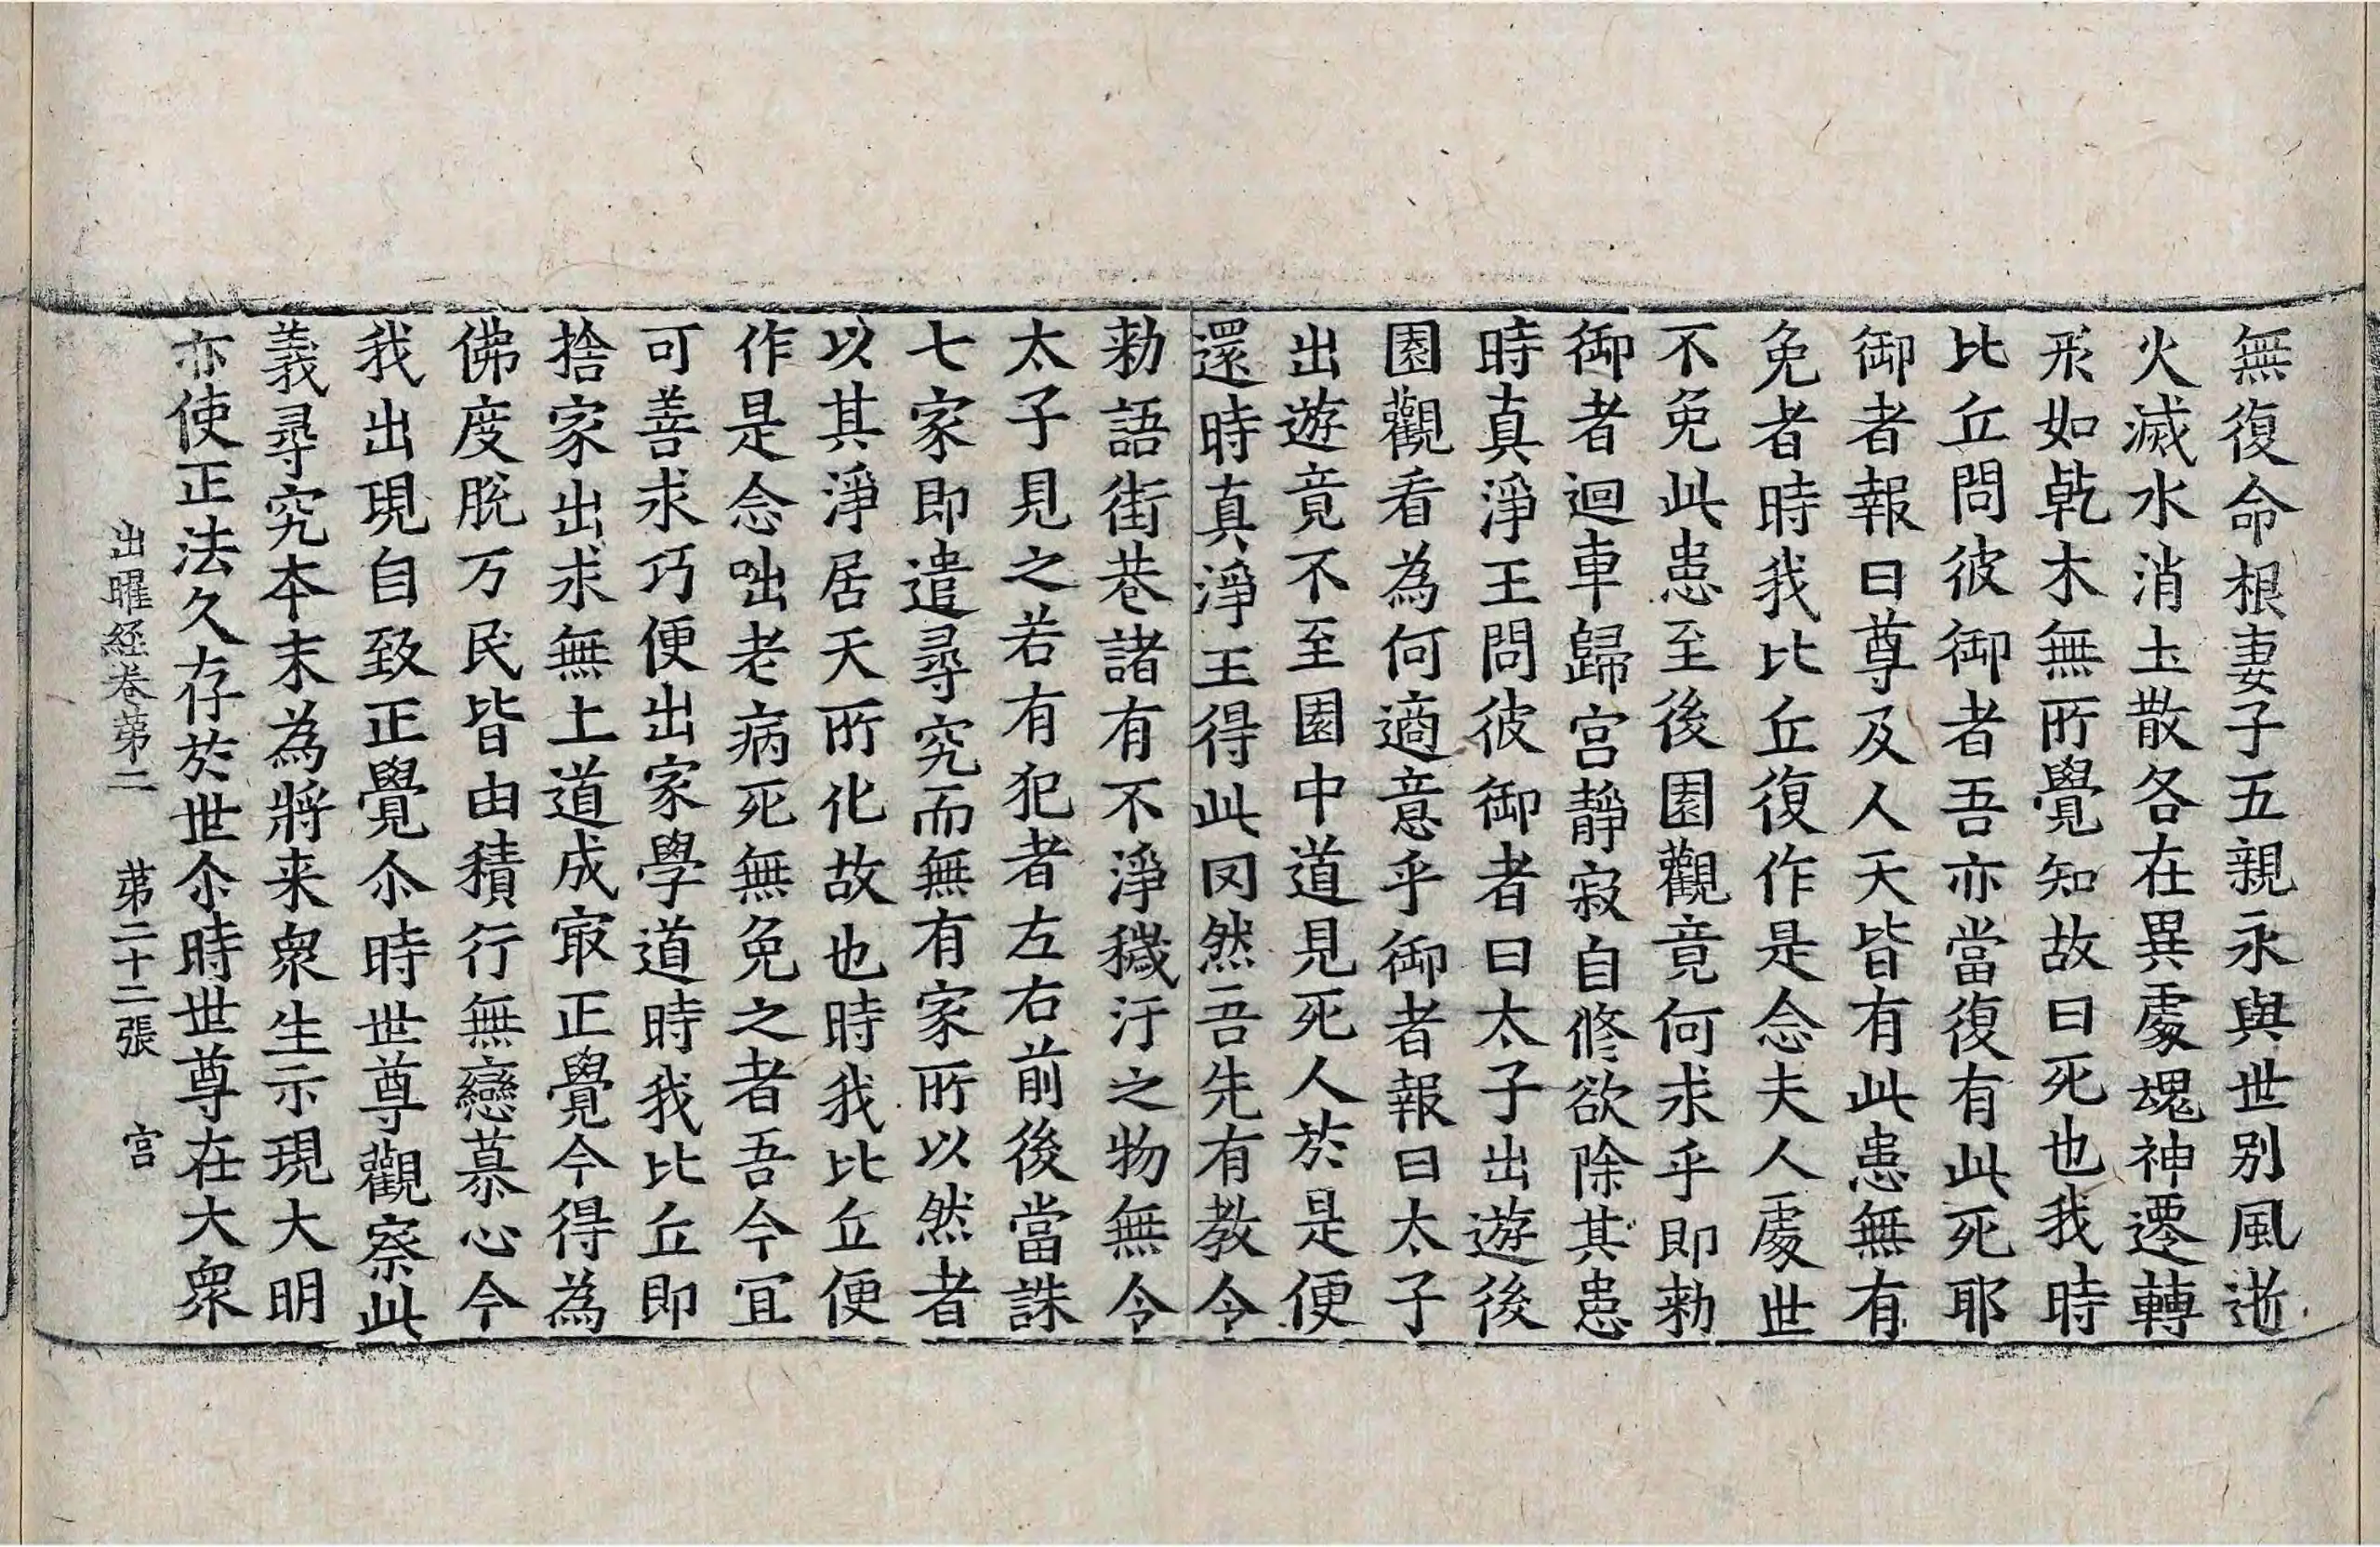 無復命根妻子五親永與世別風逝
火滅水消土散各在異處魂神遷轉
形如乾木無所覺知故曰死也我時
比丘問彼御者吾亦當復有此死耶
御者報曰尊及人天皆有此患無有
免者時我比丘復作是念夫人處世
不免此患至後園觀竟何求乎即勑
御者迴車歸宮靜寂自修欲除其患
時真淨王問彼御者曰太子出遊後
園觀看為何適意乎御者報曰太子
出遊竟不至園中道見死人於是便
還時真淨王得此罔然吾先有教令
勑語街巷諸有不淨穢汙之物無令
太子見之若有犯者左右前後當誅
七家即遣尋究而無有家所以然者
以其淨居天所化故也時我比丘便
作是念咄老病死無免之者吾今宜
可善求巧便出家學道時我比丘即
捨家出求無上道成㝡正覺今得為
佛度脫万民皆由積行無戀慕心今
我出現自致正覺尒時世尊觀察此
義尋究本末為將来衆生示現大明
亦使正法久存於世尒時世尊在大衆
出曜経卷苐二 苐二十二張 宮